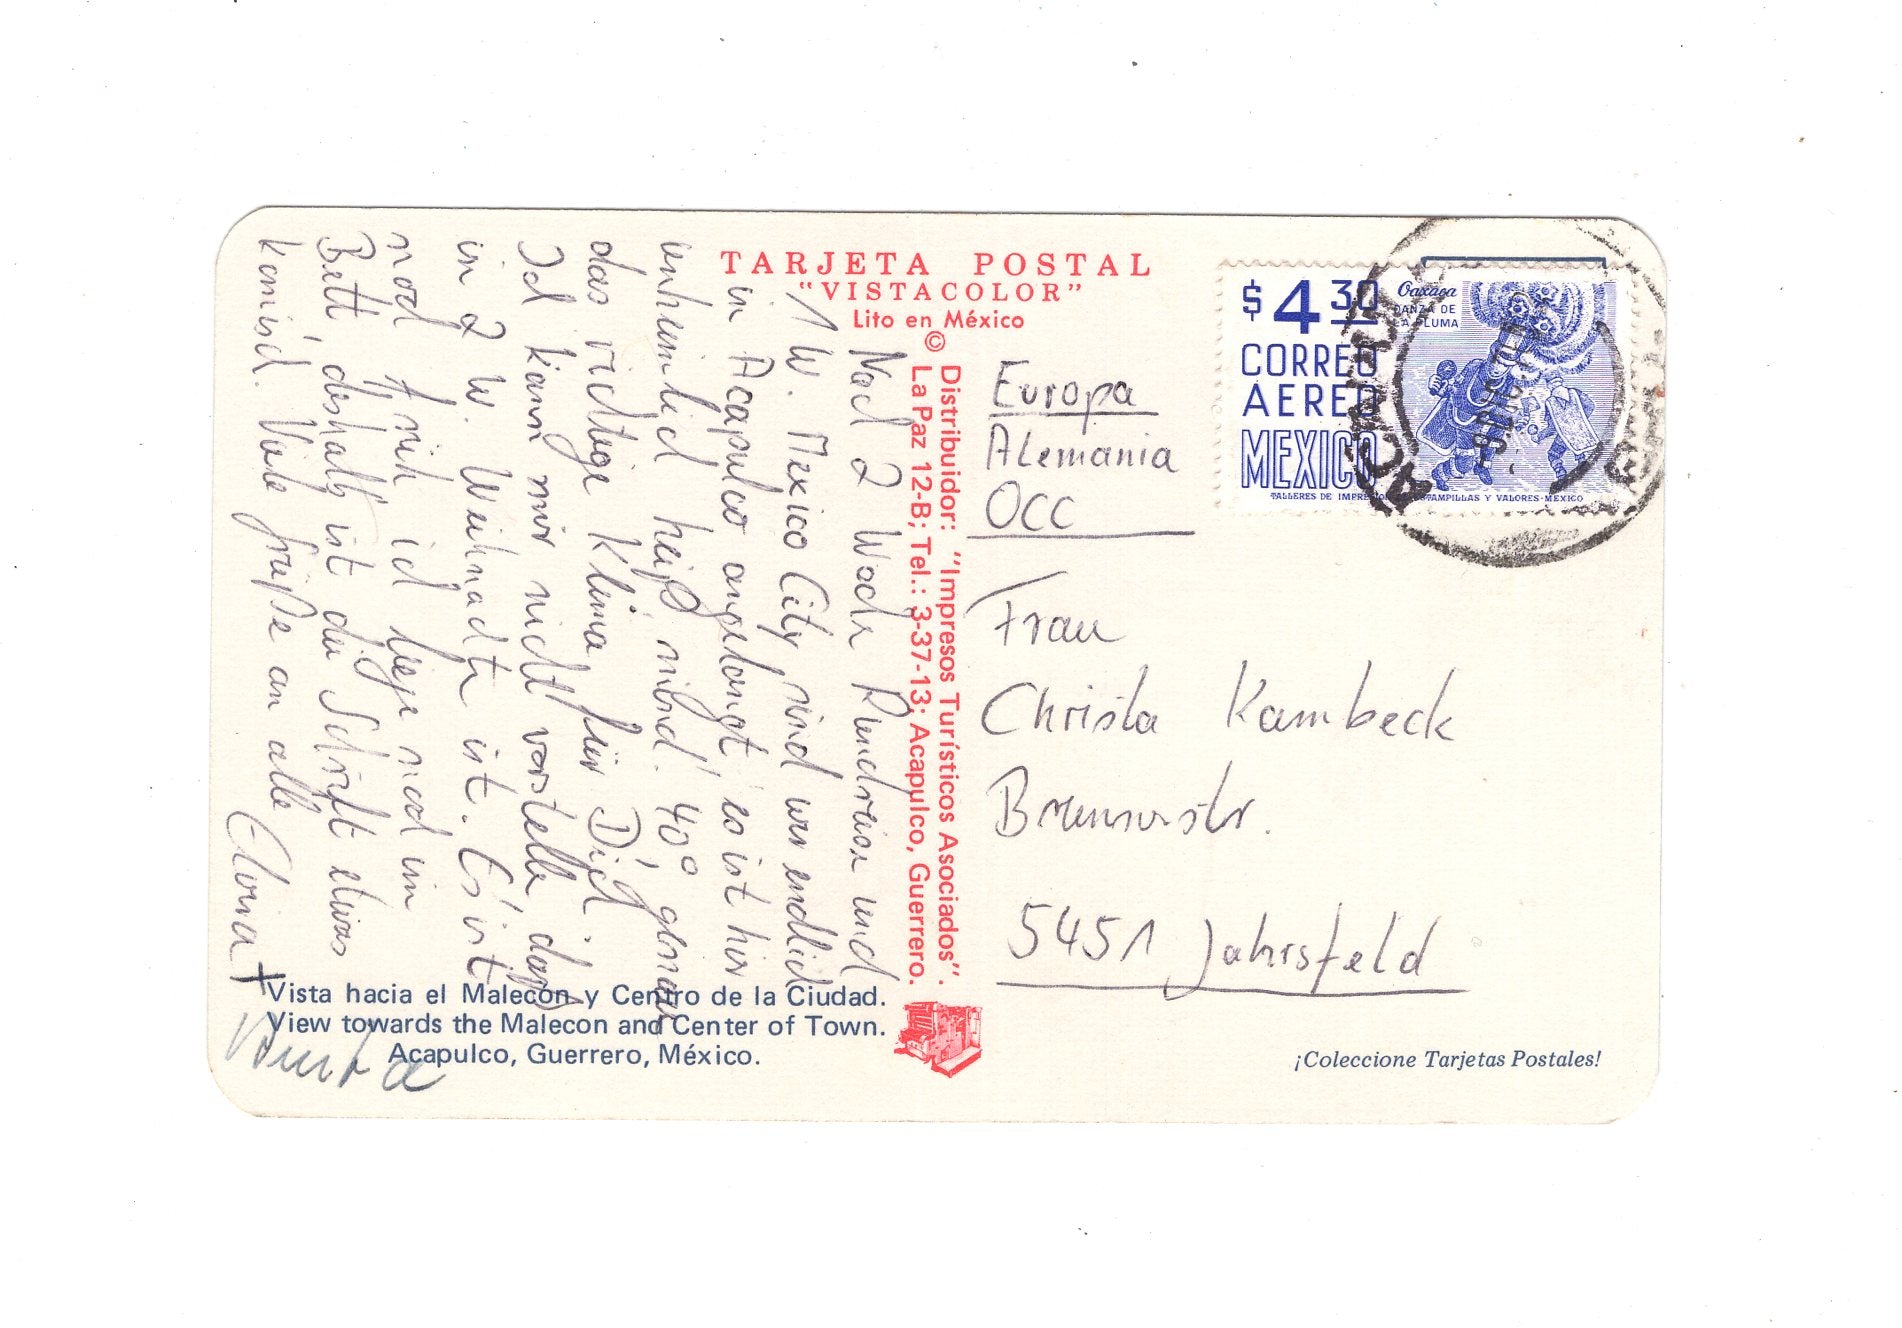 TARJETA POSTAL
"VISTACOLOR"
Lito en México
©
Distribuidor: "Impresos Turísticos Asociados".
La Paz 12-B; Tel.: 3-37-13; Acapulco, Guerrero.
Nach 2 Wochen Rundreise und
1 W. Mexico City sind wir endlich
in Acapulco angelangt, es ist hier
unheimlich heiß, mind. 40°, genau
das richtige Klima für Dich.
Ich kann mir nicht vorstellen daß
in 2 W. Weihnachten ist. Es ist
noch früh, ich liege noch im
Bett, deshalb ist die Schrift etwas
komisch. Viele Grüße an alle
+
Europa
Alemania
OCC
Frau
Christa Kambeck
Brunnenstr.
5451 Jahrsfeld
$4.30
CORREO
AEREO
MEXICO
Oaxaca
DANZA DE
LA PLUMA
TALLERES DE IMPRESION DE ESTAMPILLAS Y VALORES-MEXICO
Vista hacia el Malecón y Centro de la Ciudad.
View towards the Malecon and Center of Town.
Acapulco, Guerrero, México.
¡Coleccione Tarjetas Postales!